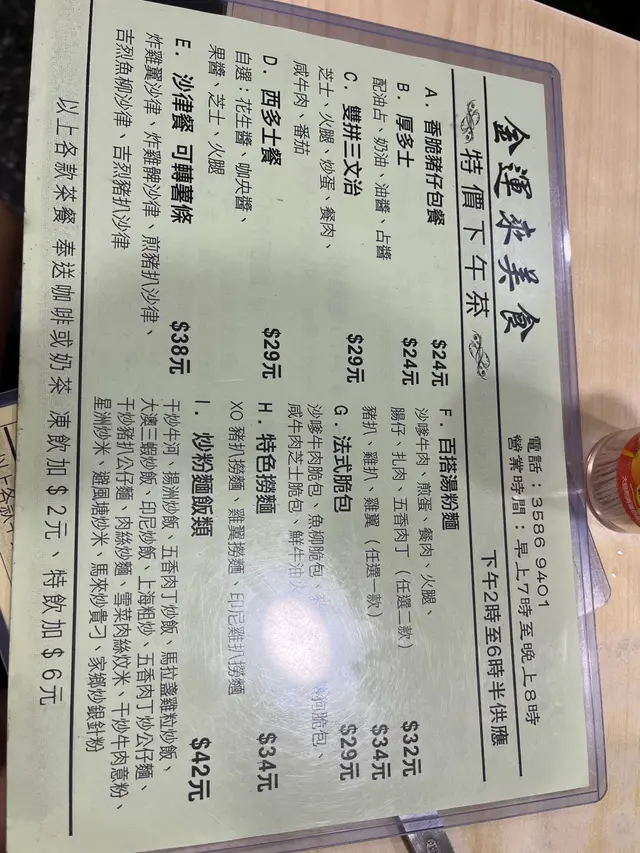 金運來美食
電話：3586 9401
營業時間：早上7時至晚上8時
特價下午茶
下午2時至6時半供應
A. 香脆豬仔包餐 $24元
B. 厚多士 $24元
配油占、奶油、油醬、占醬
C. 雙拼三文治 $29元
芝士、火腿、炒蛋、餐肉、
咸牛肉、番茄
D. 西多士餐 $29元
自選：花生醬、咖央醬、
果醬、芝士、火腿
E. 沙律餐 可轉薯條 $38元
炸雞翼沙律、炸雞髀沙律、煎豬扒沙律、
吉烈魚柳沙律、吉烈豬扒沙律
F. 百搭湯粉麵
沙嗲牛肉、煎蛋、餐肉、火腿、
腸仔、扎肉、五香肉丁（任選二款） $32元
豬扒、雞扒、雞翼（任選一款） $34元
G. 法式脆包 $29元
沙嗲牛肉脆包、魚柳脆包、
狗脆包、
咸牛肉芝士脆包、鮮牛油
H. 特色撈麵 $34元
XO豬扒撈麵、雞翼撈麵、印尼雞扒撈麵
I. 炒粉麵飯類 $42元
干炒牛河、揚洲炒飯、五香肉丁炒飯、馬拉盞雞粒炒飯、
大澳三蝦炒飯、印尼炒飯、上海粗炒、五香肉丁炒公仔麵、
干炒豬扒公仔麵、肉絲炒麵、雪菜肉絲炆米、干炒牛肉意粉、
星洲炒米、避風塘炒米、馬來炒貴刁、家鄉炒銀針粉
以上各款茶餐 奉送咖啡或奶茶 凍飲加$2元、特飲加$6元
以上各款